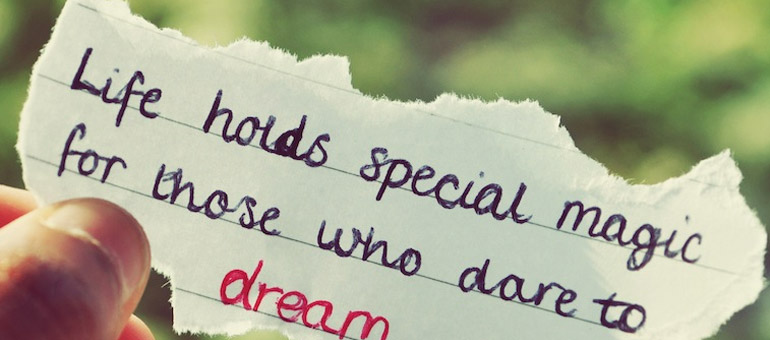 Life holds special magic
for those who dare to
dream